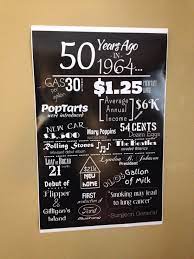 50 Years Ago
IN
1964...
GAS 30¢
$1.25
POPTARTS
were introduced
Average
Annual
Income
$6K
NEW CAR
$3,500
Mary Poppins
54 CENTS
Dozen Eggs
Rolling Stones
The Beatles
Lyndon B. Johnson
21
NEW
HOME
Gallon
of Milk
Debut of
Flipper
&
Gilligan's
Island
FIRST
production of
Ford
"Smoking may lead
to lung cancer"
-Surgeon General